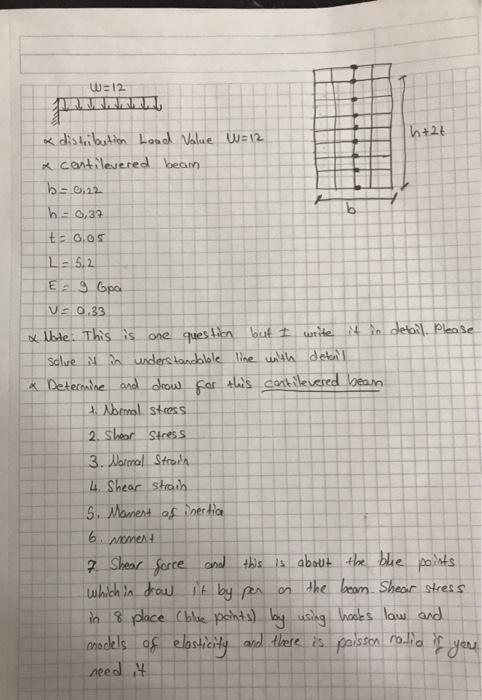 W=12
h+2t
α distribution Load Value W=12
α cantilevered beam
b
b = 0,22
h = 0,37
t = 0.05
L = 5,2
E = 9 Gpa
V = 0,33
α Note: This is one question but I write it in detail. Please
solve it in understandable line with detail
α Determine and draw for this cantilevered beam
1. Normal stress
2. Shear stress
3. Normal Strain
4. Shear strain
5. Moment of inertia
6. moment
7. Shear force and this is about the blue points
which in draw it by pen on the beam. Shear stress
in 8 place (blue points) by using hooks law and
models of elasticity and there is poisson ratio if you
need it